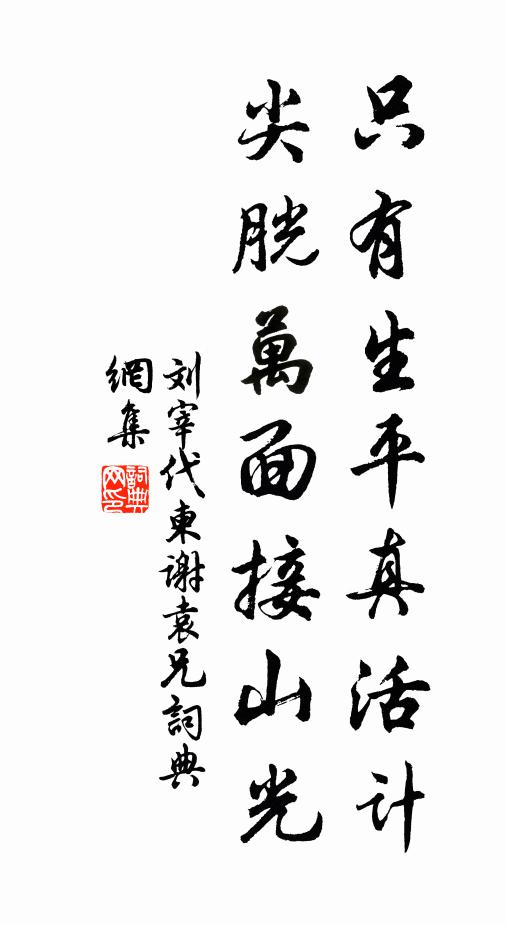 只有生平真活计
尖胱萬面接山光
刘宰代東谢袁兄詞典
網集
詞典